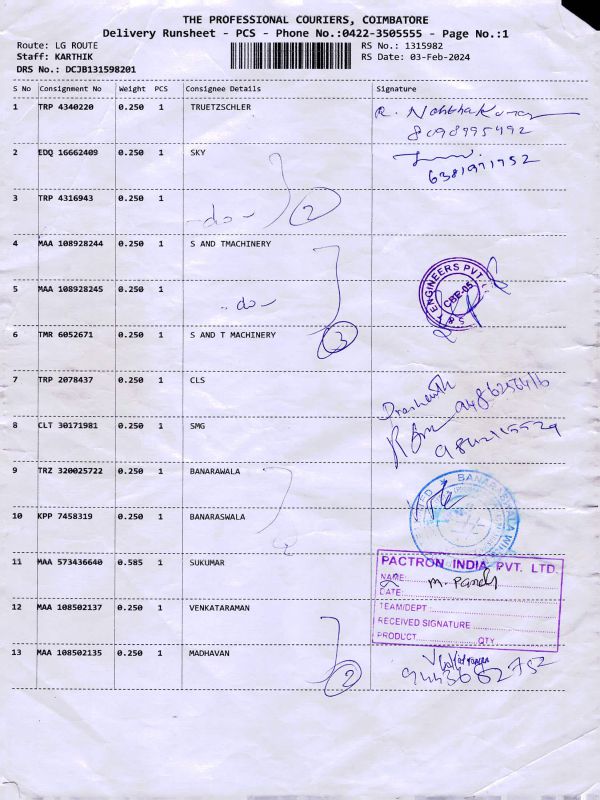 THE PROFESSIONAL COURIERS, COIMBATORE
Delivery Runsheet - PCS - Phone No.:0422-3505555 - Page No.:1
Route: LG ROUTE
RS No.: 1315982
Staff: KARTHIK
RS Date: 03-Feb-2024
DRS No.: DCJB131598201
S No Consignment No Weight PCS Consignee Details Signature
1 TRP 4340220 0.250 1 TRUETZSCHLER
8098995492
2 EDQ 16662409 0.250 1 SKY
6381971752
3 TRP 4316943 0.250 1
-do- 2
4 MAA 108928244 0.250 1 S AND TMACHINERY
5 MAA 108928245 0.250 1
-do-
ENGINEERS PVT.
CBE-05
6 TMR 6052671 0.250 1 S AND T MACHINERY
3
7 TRP 2078437 0.250 1 CLS
8 CLT 30171981 0.250 1 SMG
9 TRZ 320025722 0.250 1 BANARAWALA
10 KPP 7458319 0.250 1 BANARASWALA
11 MAA 573436640 0.585 1 SUKUMAR
PACTRON INDIA PVT. LTD.
NAME:
DATE:
12 MAA 108502137 0.250 1 VENKATARAMAN
TEAM/DEPT
RECEIVED SIGNATURE
PRODUCT QTY
13 MAA 108502135 0.250 1 MADHAVAN
2
9443682752